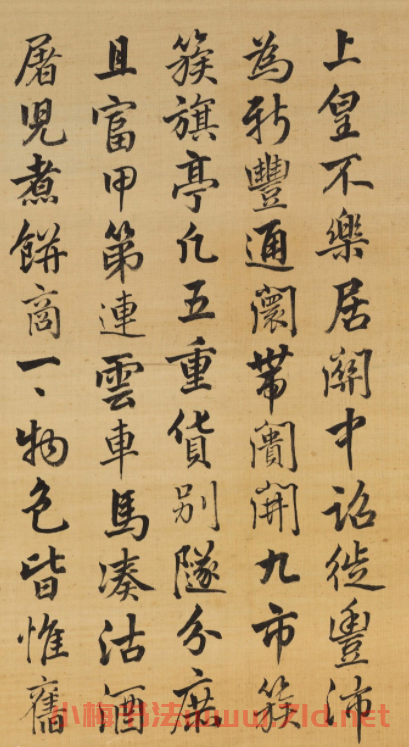 上皇不樂居關中詔徙豐沛
為新豐通闤帶闠開九市簇
簇旗亭凡五重貨別隧分庶
且富甲第連雲車馬湊沽酒
屠兒煮餅商一〻物色皆惟舊
小梅书法